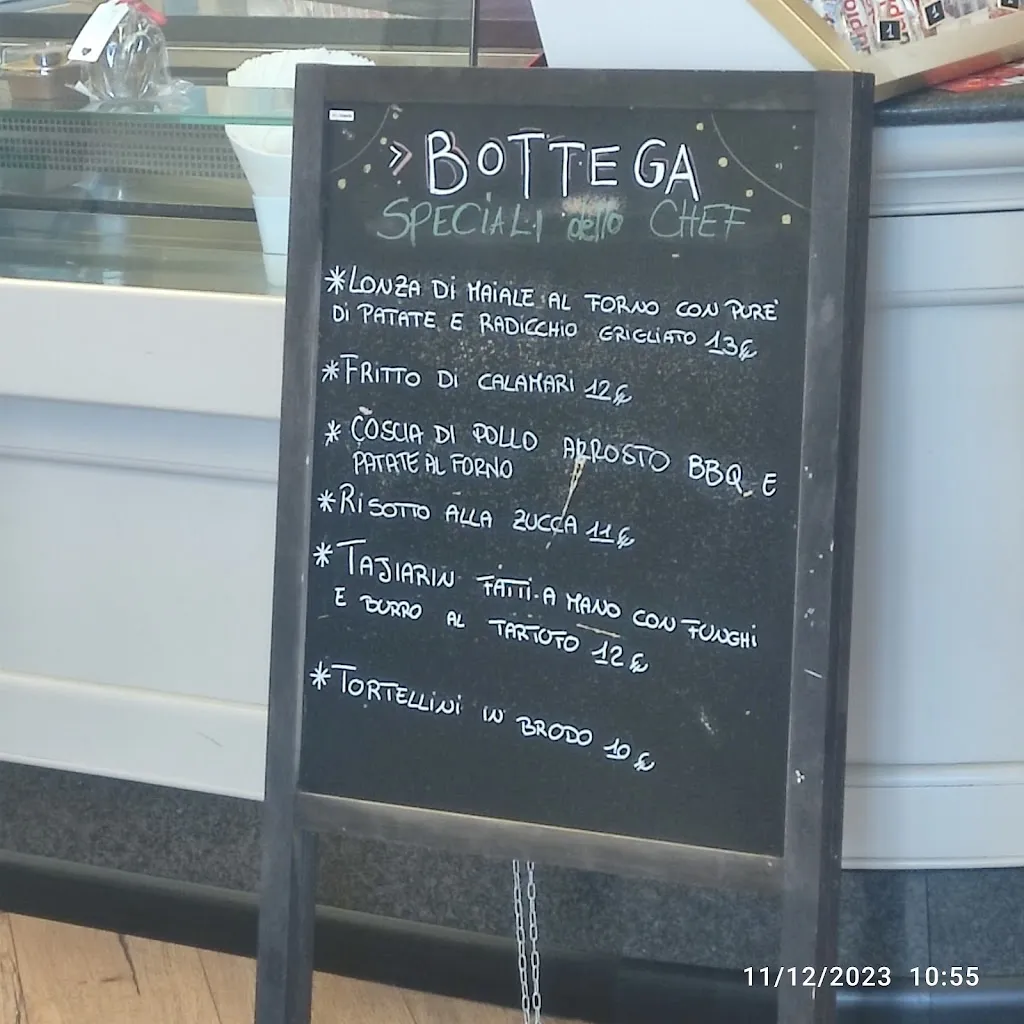 > BOTTEGA
SPECIALI dello CHEF
*LONZA DI MAIALE AL FORNO CON PURE'
DI PATATE E RADICCHIO GRIGLIATO 13€
*FRITTO DI CALAMARI 12€
* COSCIA DI POLLO ARROSTO BBQ E
PATATE AL FORNO
*RISOTTO ALLA ZUCCA 11€
*TAJIARIN FATTI A MANO CON FUNGHI
E BURRO AL TARTUFO 12€
*TORTELLINI IN BRODO 10€
11/12/2023 10:55